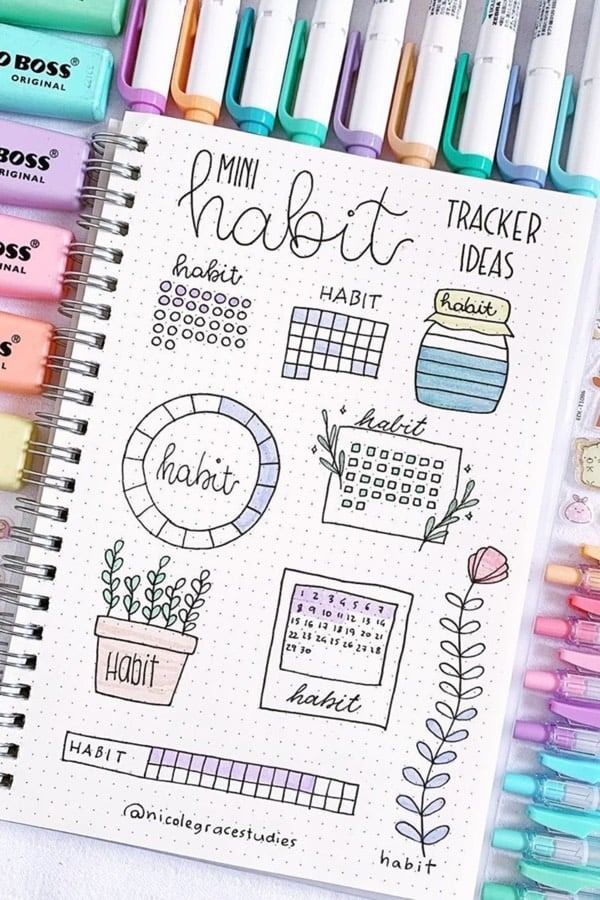 O BOSS®
ORIGINAL
BOSS®
RIGINAL
OSS®
INAL
S®
MINI
habit
TRACKER
IDEAS
habit
HABIT
habit
habit
habit
1 2 3 4 5 6 7
8 9 10 11 12 13 14
15 16 17 18 19 20 21
22 23 24 25 26 27 28
29 30
habit
Habit
HABIT
@nicolegracestudies
habit